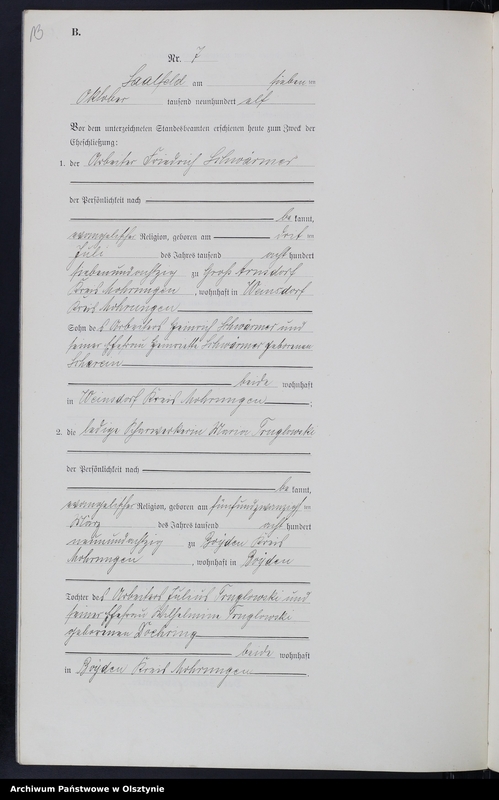 B.
Nr. 7
Saalfeld am sieben ten
Oktober tausend neunhundert elf
Vor dem unterzeichneten Standesbeamten erschienen heute zum Zweck der
Eheschließung:
1. der Arbeiter Friedrich Schwärmer
der Persönlichkeit nach
be kannt,
evangelischer Religion, geboren am drit ten
Juli des Jahres tausend acht hundert
siebenundachtzig zu Groß Arnsdorf
Kreis Mohrungen, wohnhaft in Weinsdorf
Kreis Mohrungen
Sohn des Arbeiters Heinrich Schwärmer und
seiner Ehefrau Henriette Schwärmer geborenen
beide wohnhaft
in Weinsdorf Kreis Mohrungen;
2. die ledige Scharwerkerin Maria
der Persönlichkeit nach
be kannt,
evangelischer Religion, geboren am fünfundzwanzigsten
März des Jahres tausend acht hundert
neunundachtzig zu Boyden Kreis
Mohrungen, wohnhaft in Boyden
Tochter des Arbeiters Julius und
seiner Ehefrau Wilhelmine
geborenen
beide wohnhaft
in Boyden Kreis Mohrungen.
Archiwum Państwowe w Olsztynie